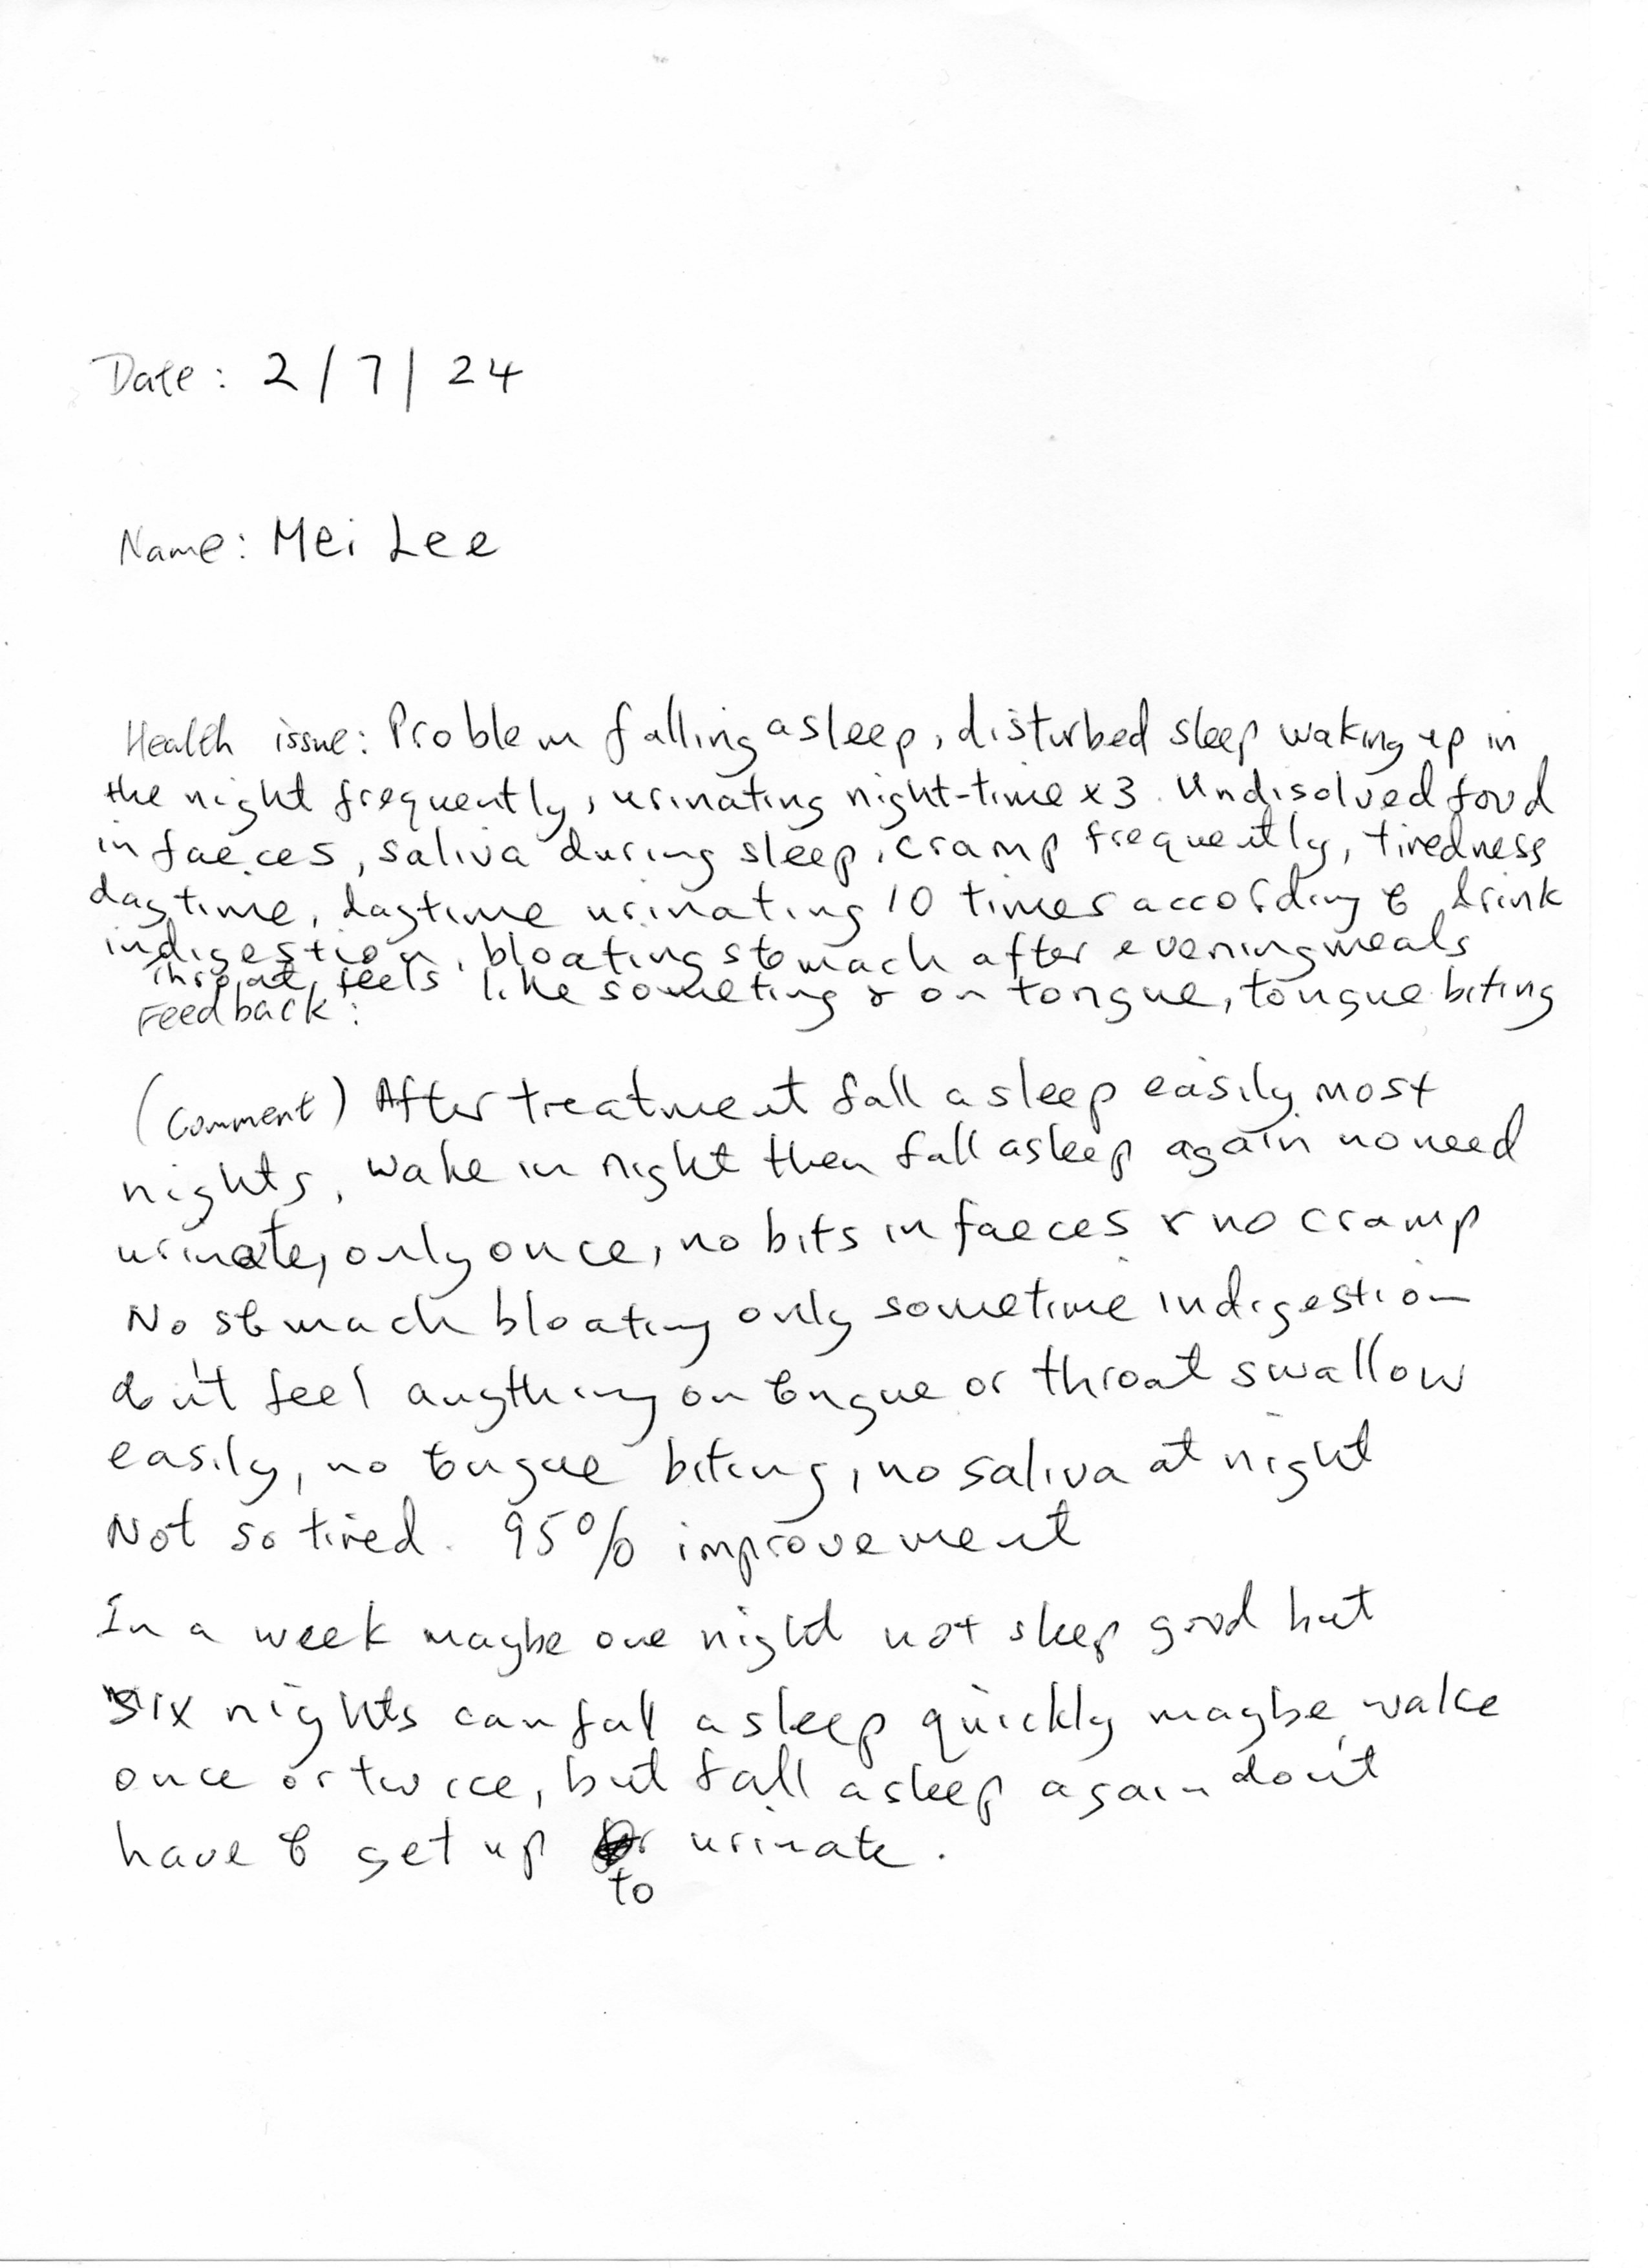 Date: 2/7/24
Name: Mei Lee
Health issue: Problem falling asleep, disturbed sleep waking up in
the night frequently, urinating night-time x3. Undisolved food
in faeces, saliva during sleep, cramp frequently, tiredness
daytime, daytime urinating 10 times according to drink
indigestion, bloating stomach after evening meals
throat feels like someting & on tongue, tongue biting
Feedback:
(Comment) After treatment fall asleep easily most
nights, wake in night then fall asleep again no need
urinate, only once, no bits in faeces & no cramp
No stomach bloating only sometime indigestion
don't feel anything on tongue or throat swallow
easily, no tongue biting, no saliva at night
Not so tired. 95% improvement
In a week maybe one night not sleep good but
six nights can fall asleep quickly maybe wake
once or twice, but fall asleep again don't
have to get up to urinate.